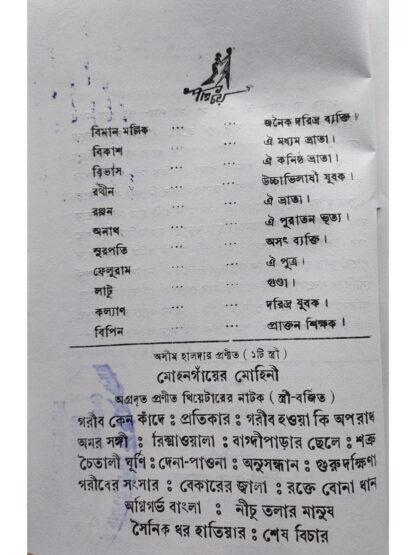 পরিচয়
বিমান মল্লিক ... ... জনৈক দরিদ্র ব্যক্তি।
বিকাশ ... ... ঐ মধ্যম ভ্রাতা।
বিভাস ... ... ঐ কনিষ্ঠ ভ্রাতা।
রথীন ... ... উচ্চাভিলাষী যুবক।
রঞ্জন ... ... ঐ ভ্রাতা।
অনাথ ... ... ঐ পুরাতন ভৃত্য।
সুরপতি ... ... অসৎ ব্যক্তি।
ফেলুরাম ... ... ঐ পুত্র।
লাটু ... ... গুণ্ডা।
কল্যাণ ... ... দরিদ্র যুবক।
বিপিন ... ... প্রাক্তন শিক্ষক।
অসীম হালদার প্রণীত (১টি স্ত্রী)
মোহনগাঁয়ের মোহিনী
অগ্রদূত প্রণীত থিয়েটারের নাটক (স্ত্রী-বর্জিত)
গরীব কেন কাঁদে : প্রতিকার : গরীব হওয়া কি অপরাধ
অমর সঙ্গী : রিক্সাওয়ালা : বাগ্দীপাড়ার ছেলে : শত্রু
চৈতালী ঘূর্ণি : দেনা-পাওনা : অনুসন্ধান : গুরুদক্ষিণা
গরীবের সংসার : বেকারের জ্বালা : রক্তে বোনা ধান
অগ্নিগর্ভ বাংলা : নীচু তলার মানুষ
সৈনিক ধর হাতিয়ার : শেষ বিচার